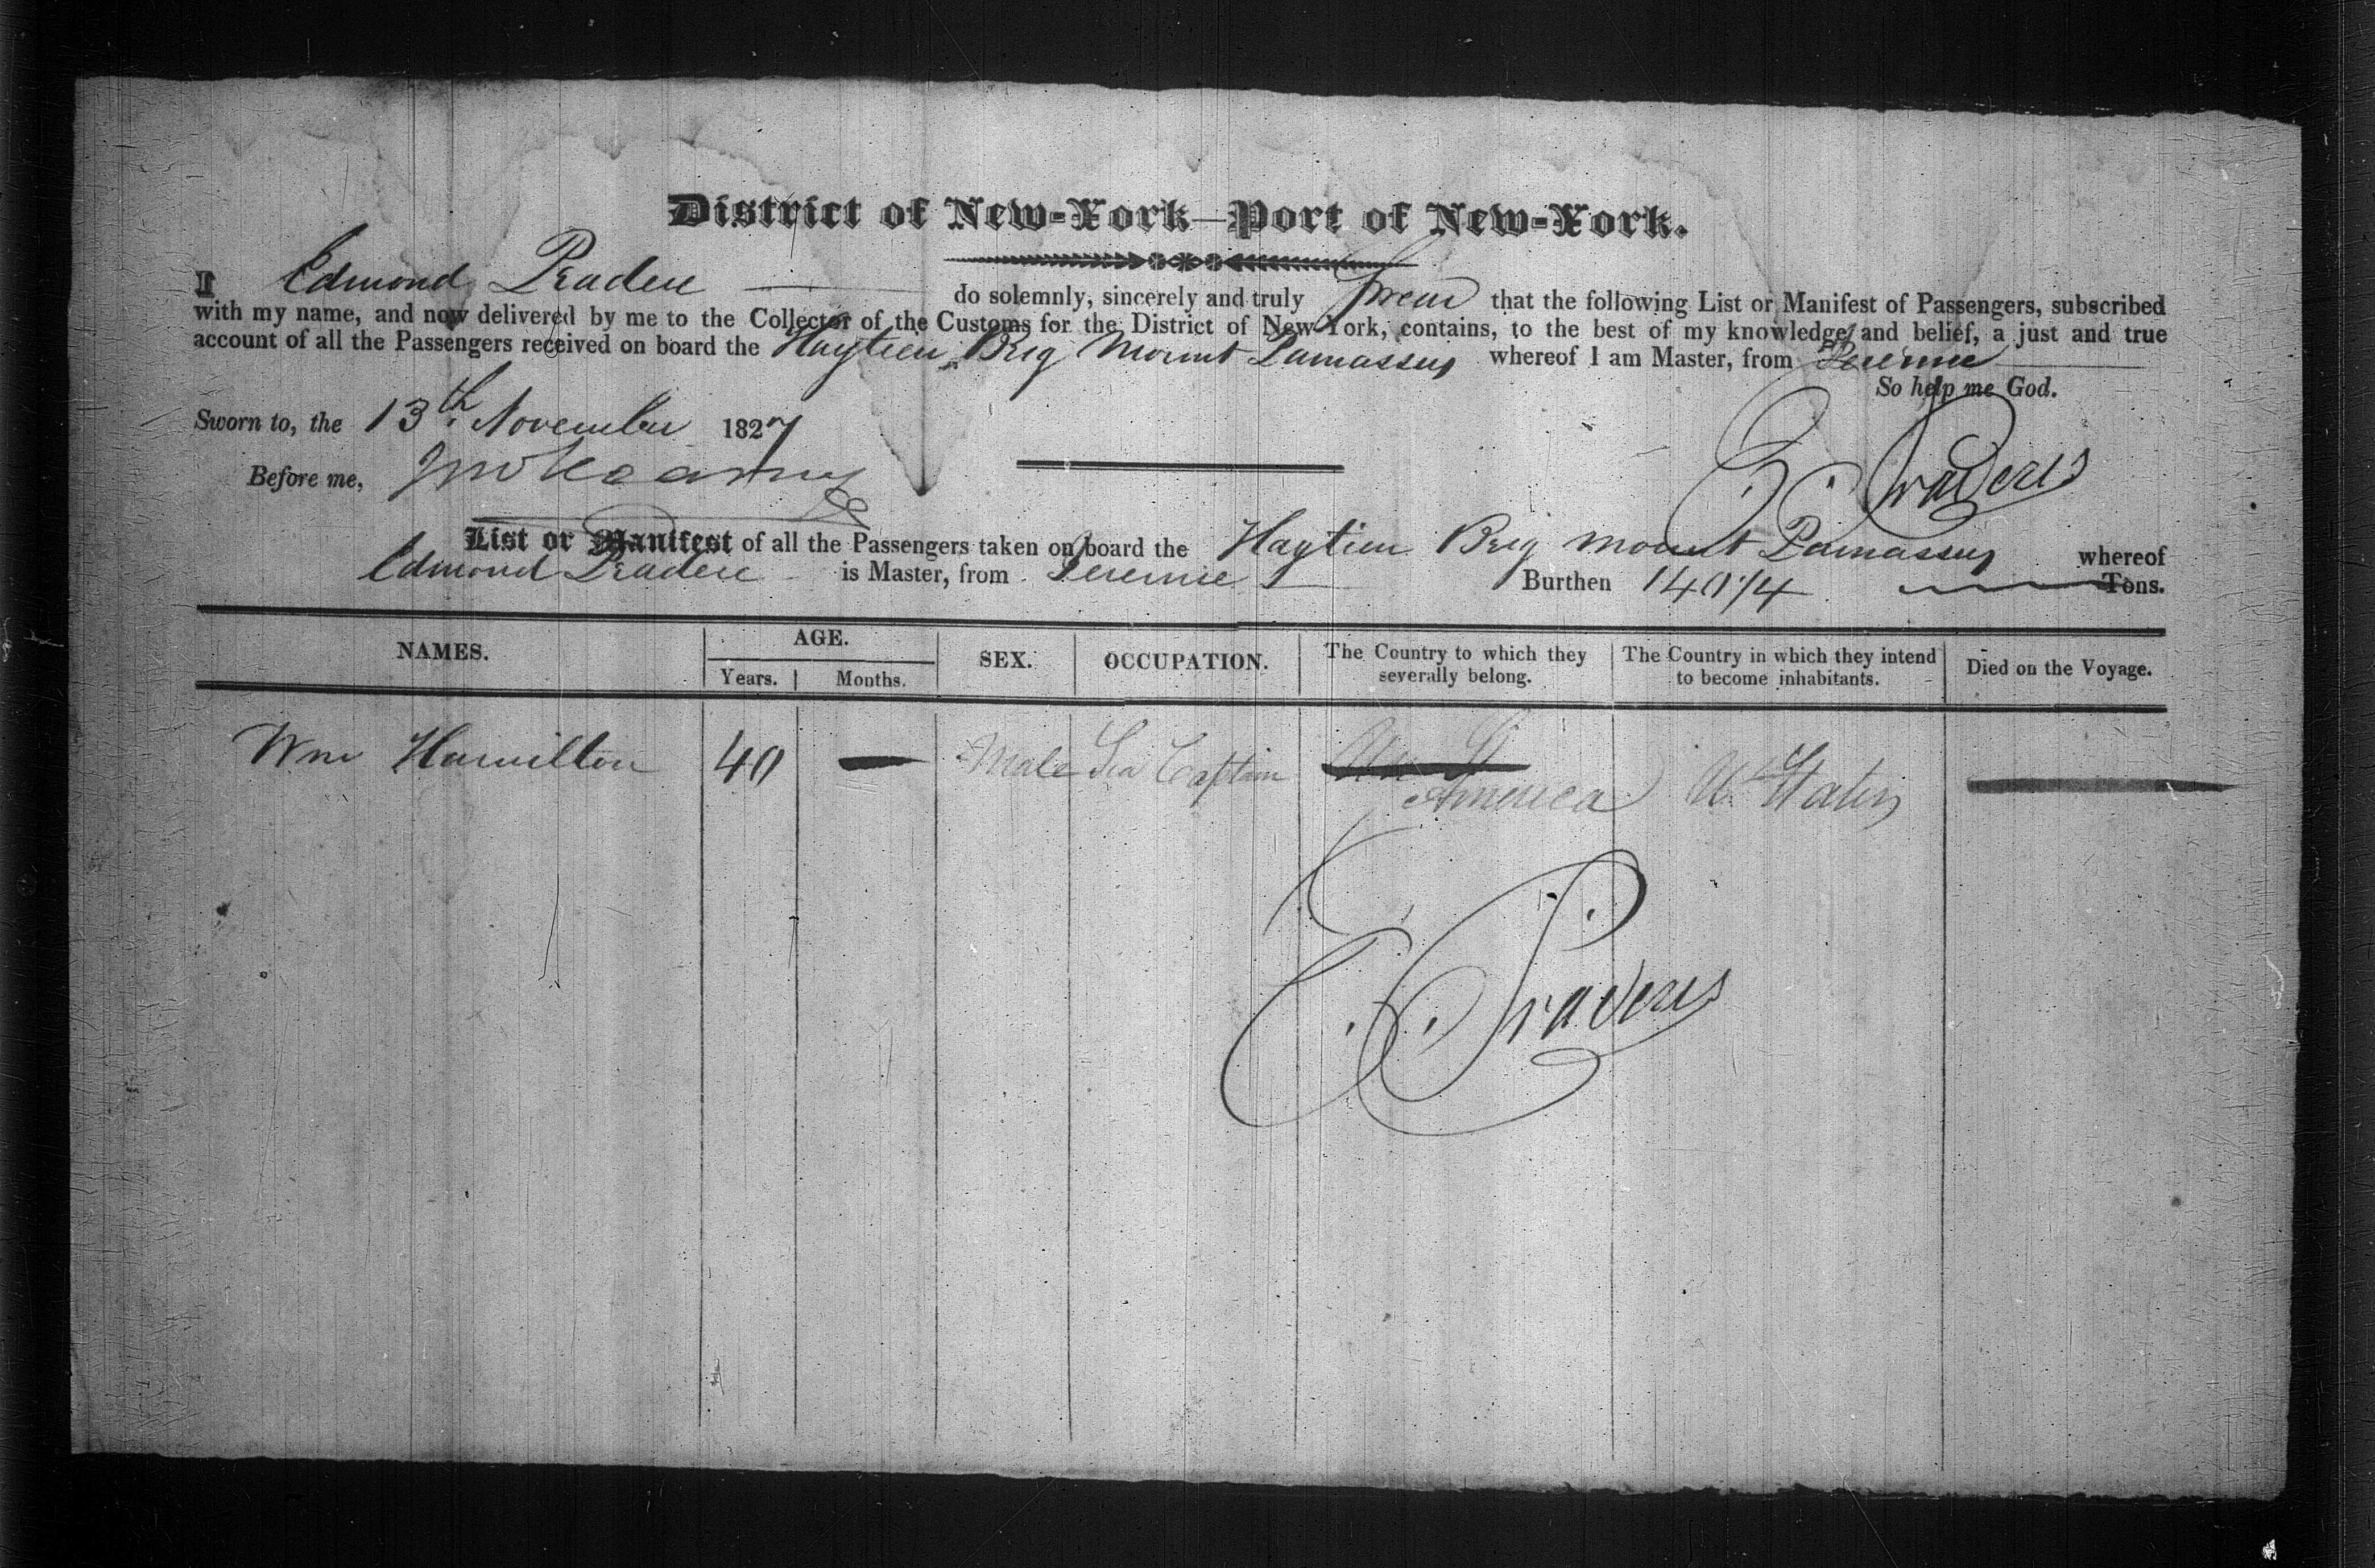 District of New-York—Port of New-York.
I Edmond Pradere do solemnly, sincerely and truly Swear that the following List or Manifest of Passengers, subscribed
with my name, and now delivered by me to the Collector of the Customs for the District of New York, contains, to the best of my knowledge and belief, a just and true
account of all the Passengers received on board the Haytien Brig Mount Parnassus whereof I am Master, from Jeremie
So help me God.
Sworn to, the 13th November 1827
Before me,
E Praderes
List or Manifest of all the Passengers taken on board the Haytien Brig Mount Parnassus whereof
Edmond Pradere is Master, from Jeremie Burthen 140 1/4 Tons.
NAMES. AGE. SEX. OCCUPATION. The Country to which they severally belong. The Country in which they intend to become inhabitants. Died on the Voyage.
Years. Months.
Wm Hamilton 40 — Male Sea Captain America U. States —
E Praderes